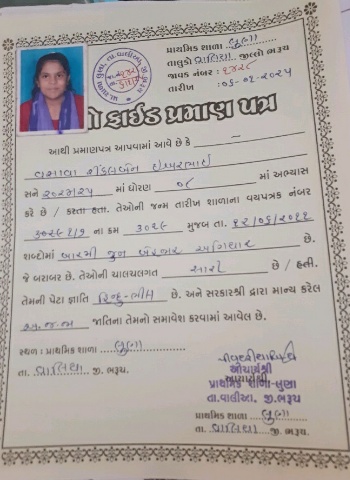 પ્રાથમિક શાળા લુણા
તાલુકો વાલિયા જીલ્લો ભરૂચ
જાવક નંબર :
તારીખ :
બોનાફાઈડ પ્રમાણ પત્ર
આથી પ્રમાણપત્ર આપવામાં આવે છે કે
વસાવા
સને ૨૦૨૪/૨૫ માં ધોરણ ૦૮ માં અભ્યાસ
કરે છે / કરતા હતા. તેઓની જન્મ તારીખ શાળાના વયપત્રક નંબર
ના ક્રમ ૩૦૨૯ મુજબ તા. ૧૨/૦૬/૨૦૧૧
શબ્દોમાં બારમી જુન બે હજાર અગિયાર છે.
જે બરાબર છે. તેઓની ચાલચલગત સારી છે / હતી.
તેમની પેટા જ્ઞાતિ હિન્દુ-ભીલ છે. અને સરકારશ્રી દ્વારા માન્ય કરેલ
અ.જ.જા જાતિના તેમનો સમાવેશ કરવામાં આવેલ છે.
સ્થળ : પ્રાથમિક શાળા લુણા
તા. વાલિયા જી. ભરૂચ.
આચાર્યશ્રી
આચાર્યશ્રી
પ્રાથમિક શાળા-લુણા
તા.વાલીઆ. જી.ભરૂચ
પ્રાથમિક શાળા લુણા
તા. વાલિયા જી. ભરૂચ.